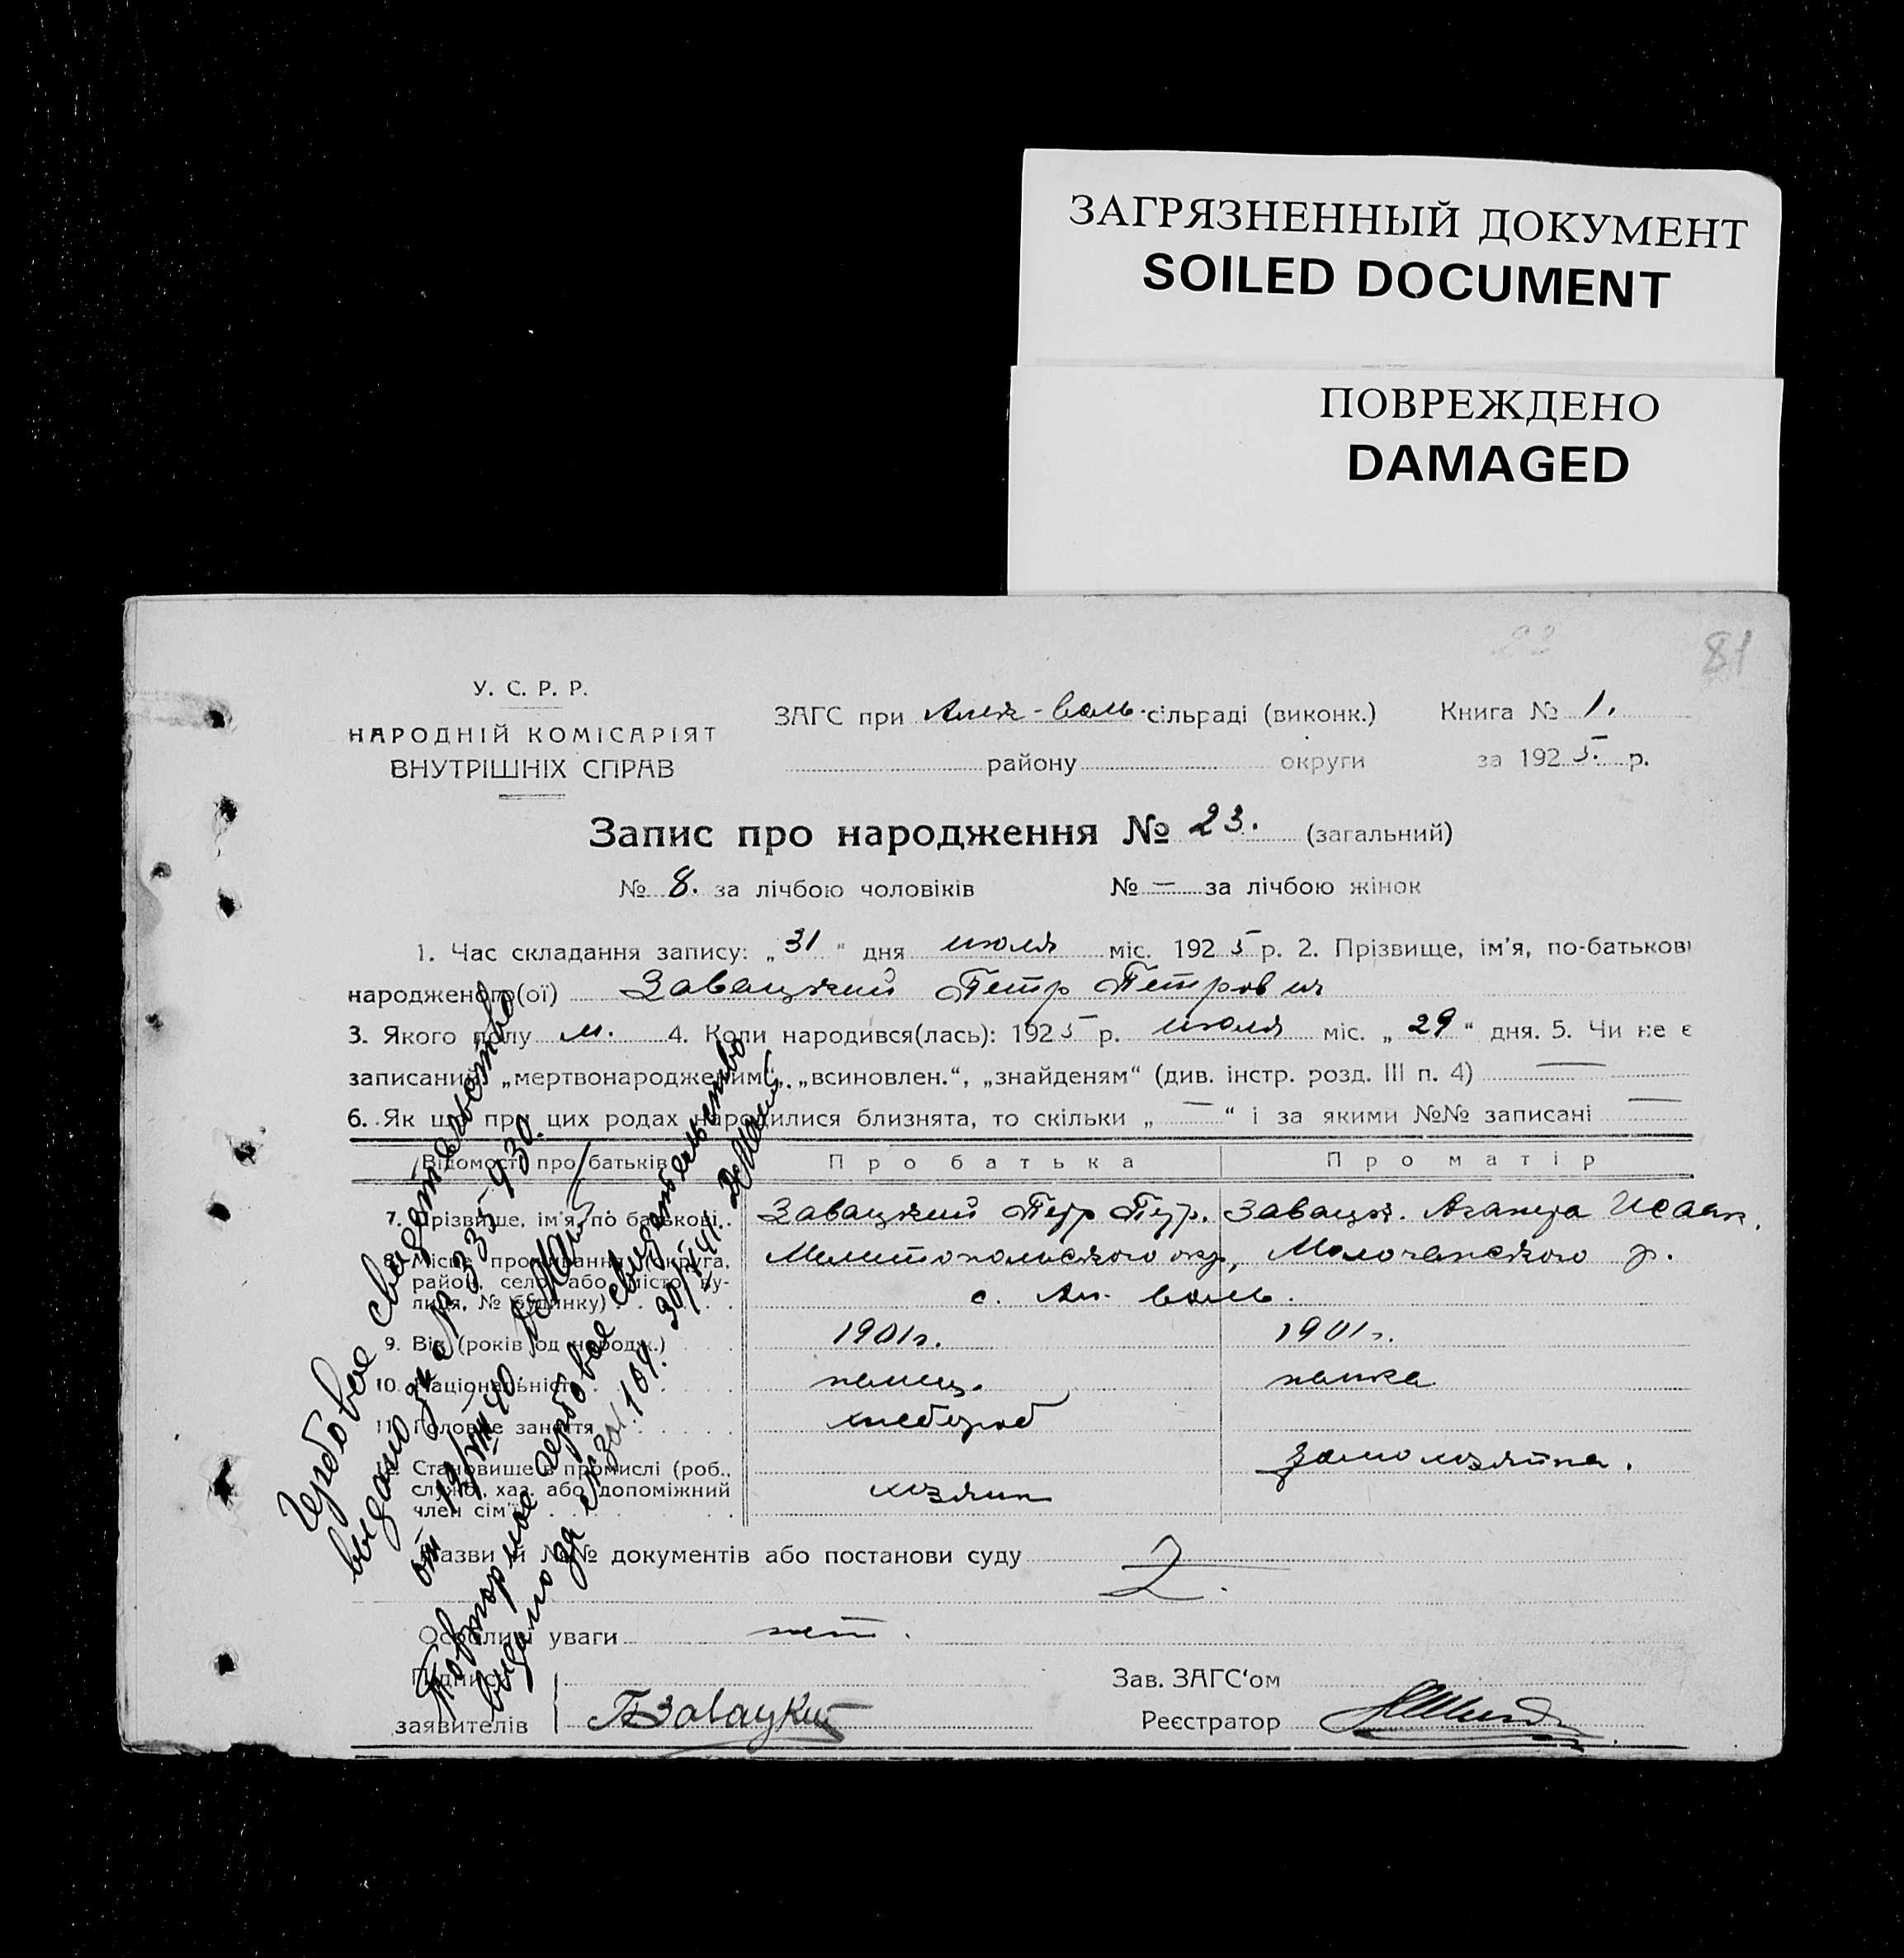 ЗАГРЯЗНЕННЫЙ ДОКУМЕНТ
SOILED DOCUMENT
ПОВРЕЖДЕНО
DAMAGED
23
81
У. С. Р. Р.
НАРОДНІЙ КОМІСАРІЯТ
ВНУТРІШНІХ СПРАВ
ЗАГС при сільраді (виконк.) Книга № 1.
району округи за 1925 р.
Запис про народження № 23. (загальний)
№ 8. за лічбою чоловіків № — за лічбою жінок
1. Час складання запису: „31" дня июля міс. 1925 р. 2. Прізвище, ім'я, по-батькові
народженого(ої) Завацкий Петр Петрович
3. Якого полу м. 4. Коли народився(лась): 1925 р. июля міс. „29" дня. 5. Чи не є
записаний „мертвонародженим“, „всиновлен.“, „знайденям“ (див. інстр. розд. III п. 4) —
6. Як що при цих родах народилися близнята, то скільки „—“ і за якими №№ записані —
Відомості про батьків Про батька Про матір
7. Прізвище, ім'я, по батькові. Завацкий Петр Петр. Завацк. Исаак.
8. Місце проживання (округа, Мелитопольского окр, Молочанского р.
район, село або місто ву-
лиця, № будинку) с. Ал. воль.
9. Вік (років од народж.) 1901г. 1901г.
10. Національність немец. немка
11. Головне заняття хлебороб
12. Становище в промислі (роб., домохозяйка.
служб., хаз. або допоміжний хозяин
член сім'ї)
Назви й №№ документів або постанови суду
Особливі уваги нет.
Підписи Зав. ЗАГС‘ом
заявителів ПЗавацкий Реєстратор
Гербовое свидетельство
выдано за № 335930.
от 19/VIII 40
Повторное гербовое свидетельство
выдано за № 104. 30/V 41г.